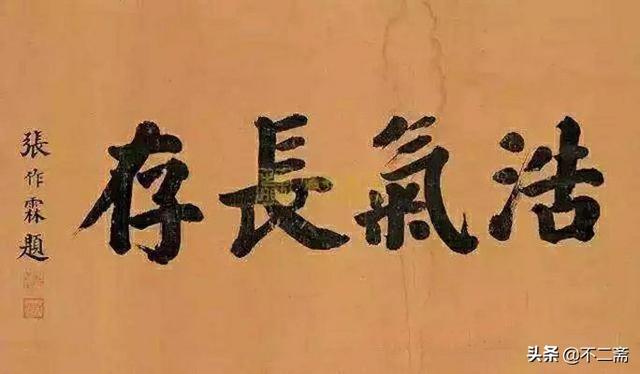 浩氣長存
張作霖題
头条 @不二斋